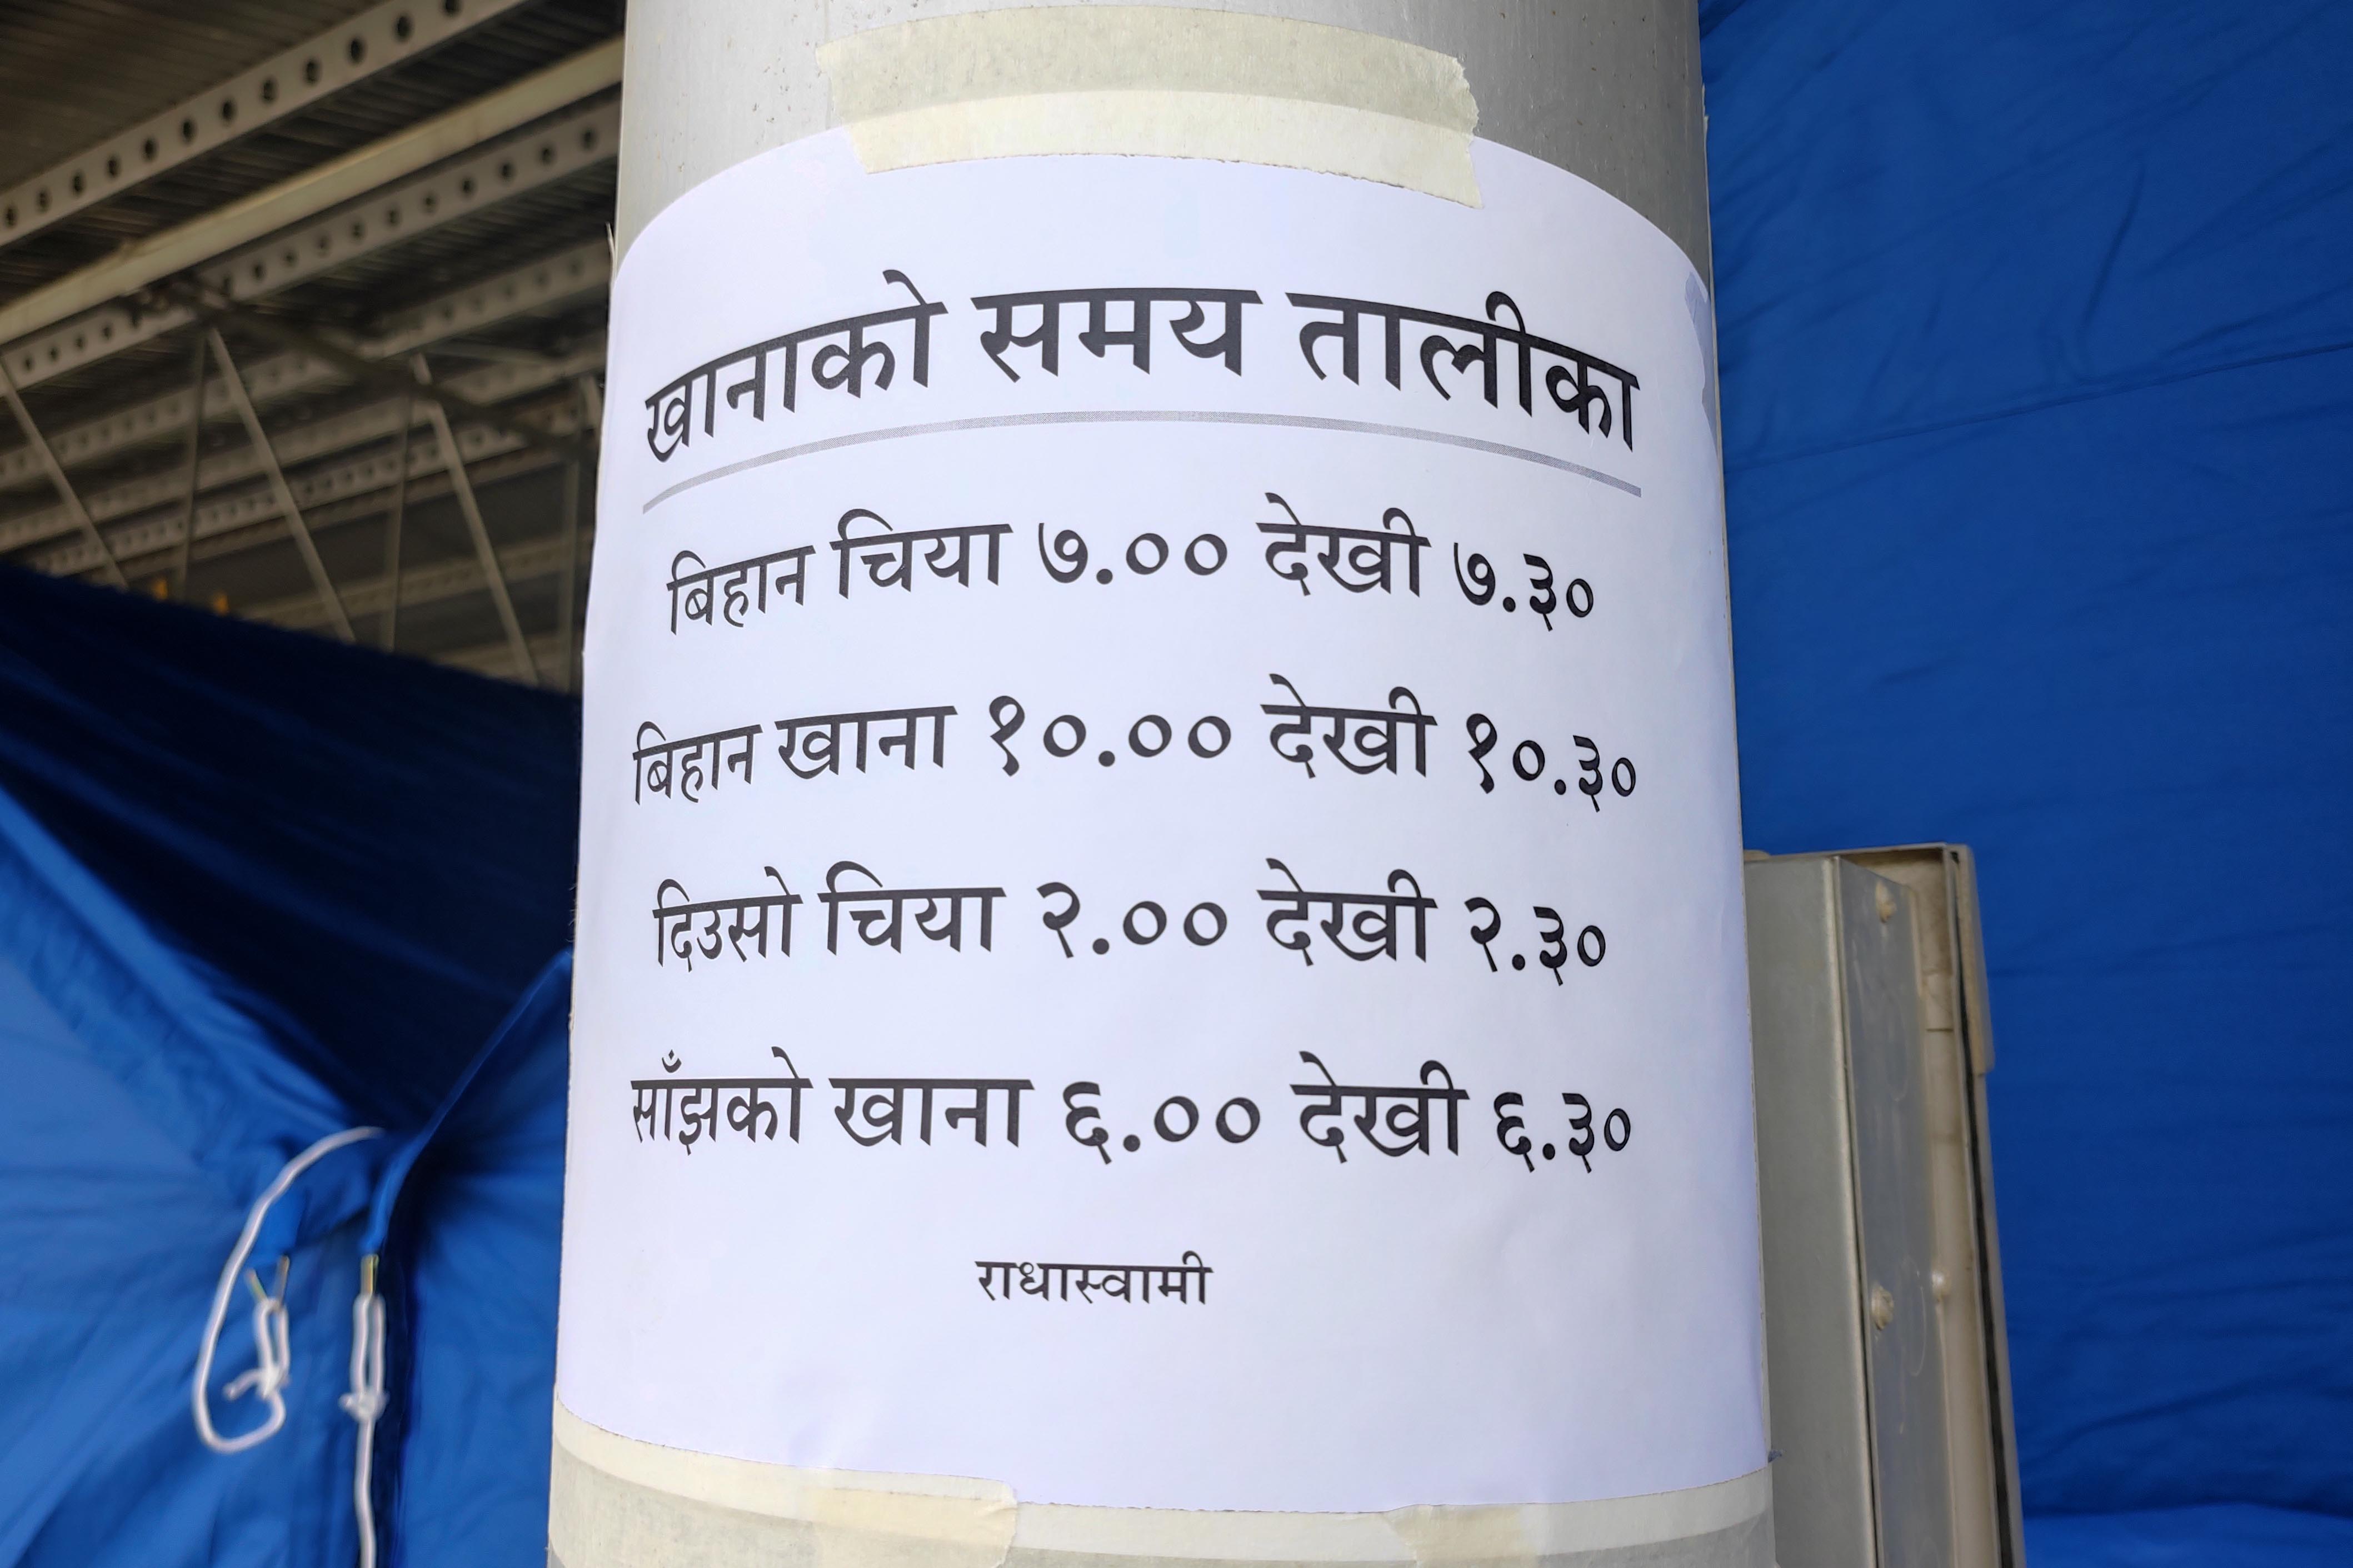 खानाको समय तालीका
बिहान चिया ७.०० देखी ७.३०
बिहान खाना १०.०० देखी १०.३०
दिउसो चिया २.०० देखी २.३०
साँझको खाना ६.०० देखी ६.३०
राधास्वामी